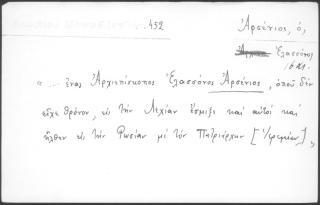 .452
Ἀρσένιος, ὁ,
Ἐλασσόνος
ἕνας Ἀρχιεπίσκοπος Ἐλασσόνος Ἀρσένιος, ὁποῦ δὲν
εἶχε θρόνον, εἰς τὴν Λεχίαν ἔσμιξε καὶ αὐτοὶ καὶ
ἦλθεν εἰς τὴν Ρωσίαν μὲ τὸν Πατριάρχην [Ἰερεμίαν],